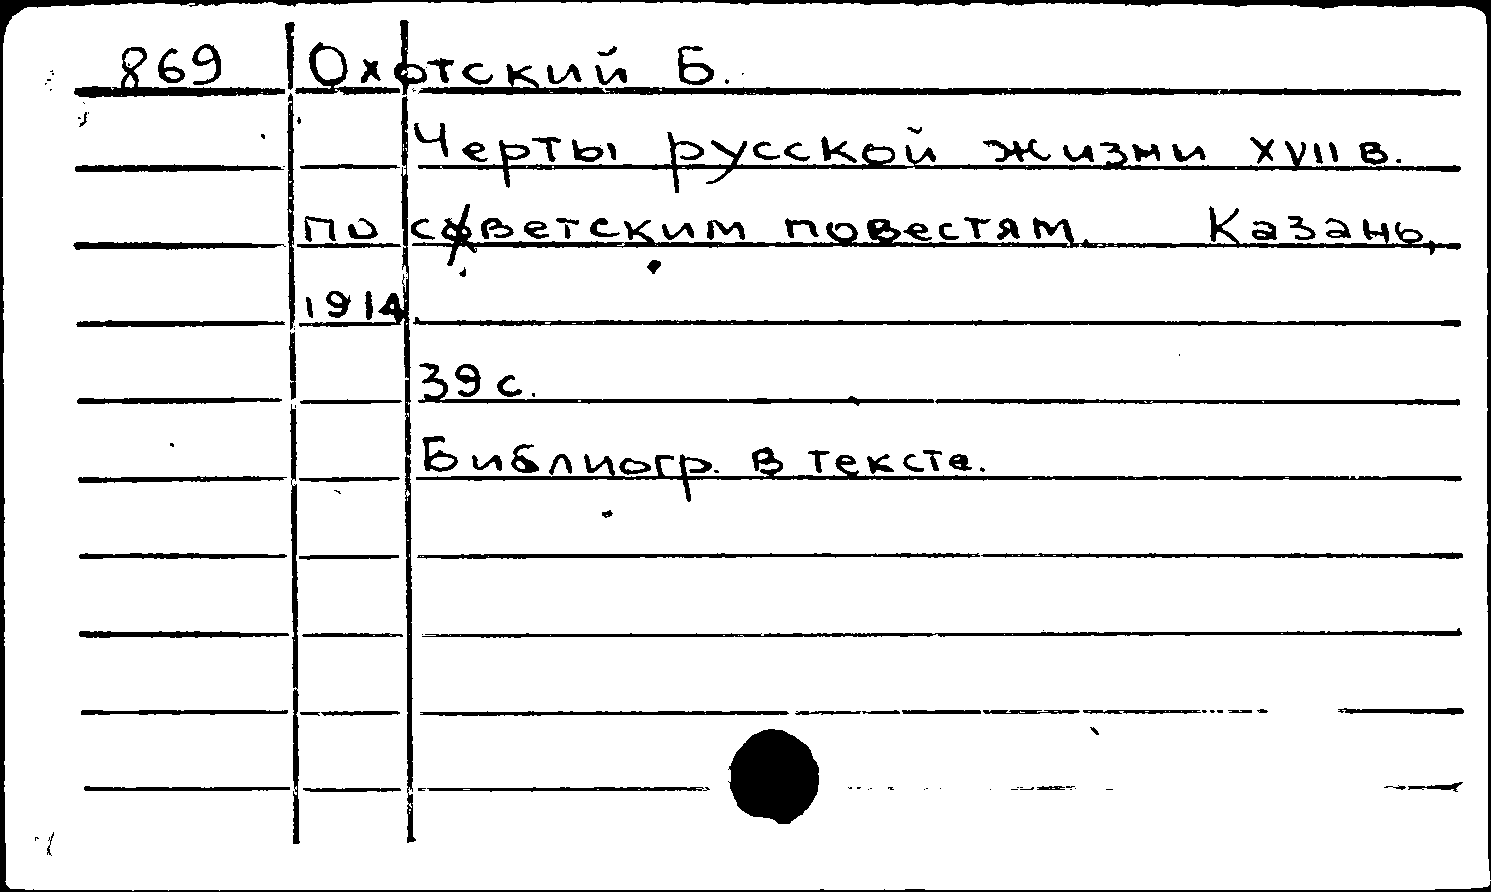 869 Охотский Б.
Черты русской жизни XVII в.
по советским повестям. Казань,
1914.
39 с.
Библиогр. в тексте.